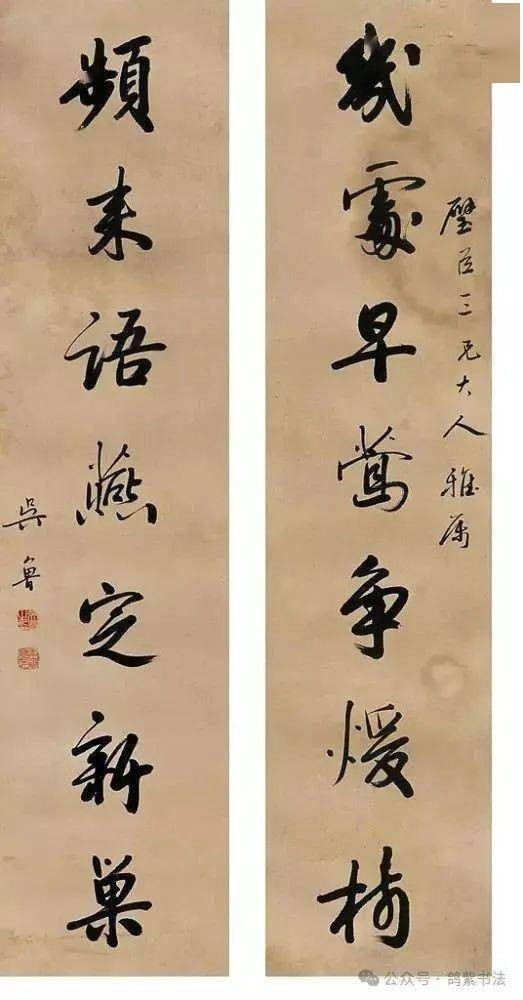 璧臣三兄大人雅属
幾處早鶯争煖樹
頻来語燕定新巢
吳魯
公众号 · 鸽紫书法